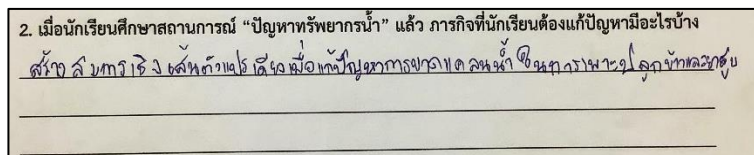 2. เมื่อนักเรียนศึกษาสถานการณ์ “ปัญหาทรัพยากรน้ำ” แล้ว ภารกิจที่นักเรียนต้องแก้ปัญหามีอะไรบ้าง
สร้างสมการเชิงเส้นตัวแปรเดียวเพื่อแก้ปัญหาการขาดแคลนน้ำในการเพาะปลูกข้าวและ